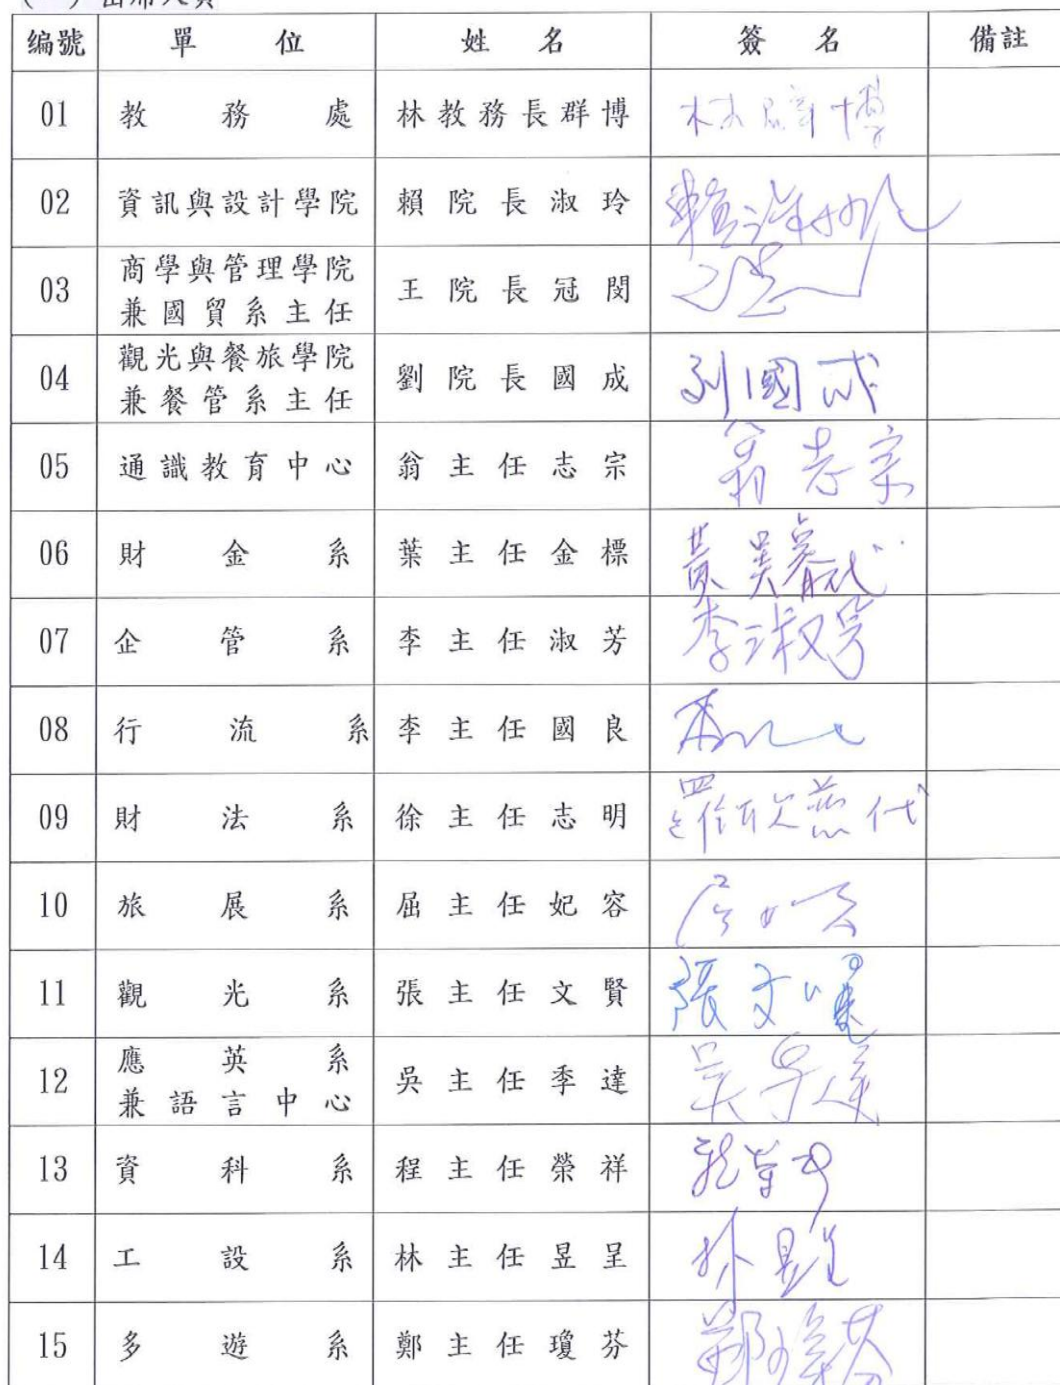 編號 單位 姓名 簽名 備註
01 教務處 林教務長群博 林群博
02 資訊與設計學院 賴院長淑玲 賴淑玲
03 商學與管理學院 王院長冠閔
兼國貿系主任
04 觀光與餐旅學院 劉院長國成 刘國成
兼餐管系主任
05 通識教育中心 翁主任志宗 翁志宗
06 財金系 葉主任金標
07 企管系 李主任淑芳 李淑芳
08 行流系 李主任國良
09 財法系 徐主任志明
10 旅展系 屈主任妃容
11 觀光系 張主任文賢 張文賢
12 應英系 吳主任季達 吳季達
兼語言中心
13 資科系 程主任榮祥
14 工設系 林主任昱呈 林昱呈
15 多遊系 鄭主任瓊芬 鄭瓊芬